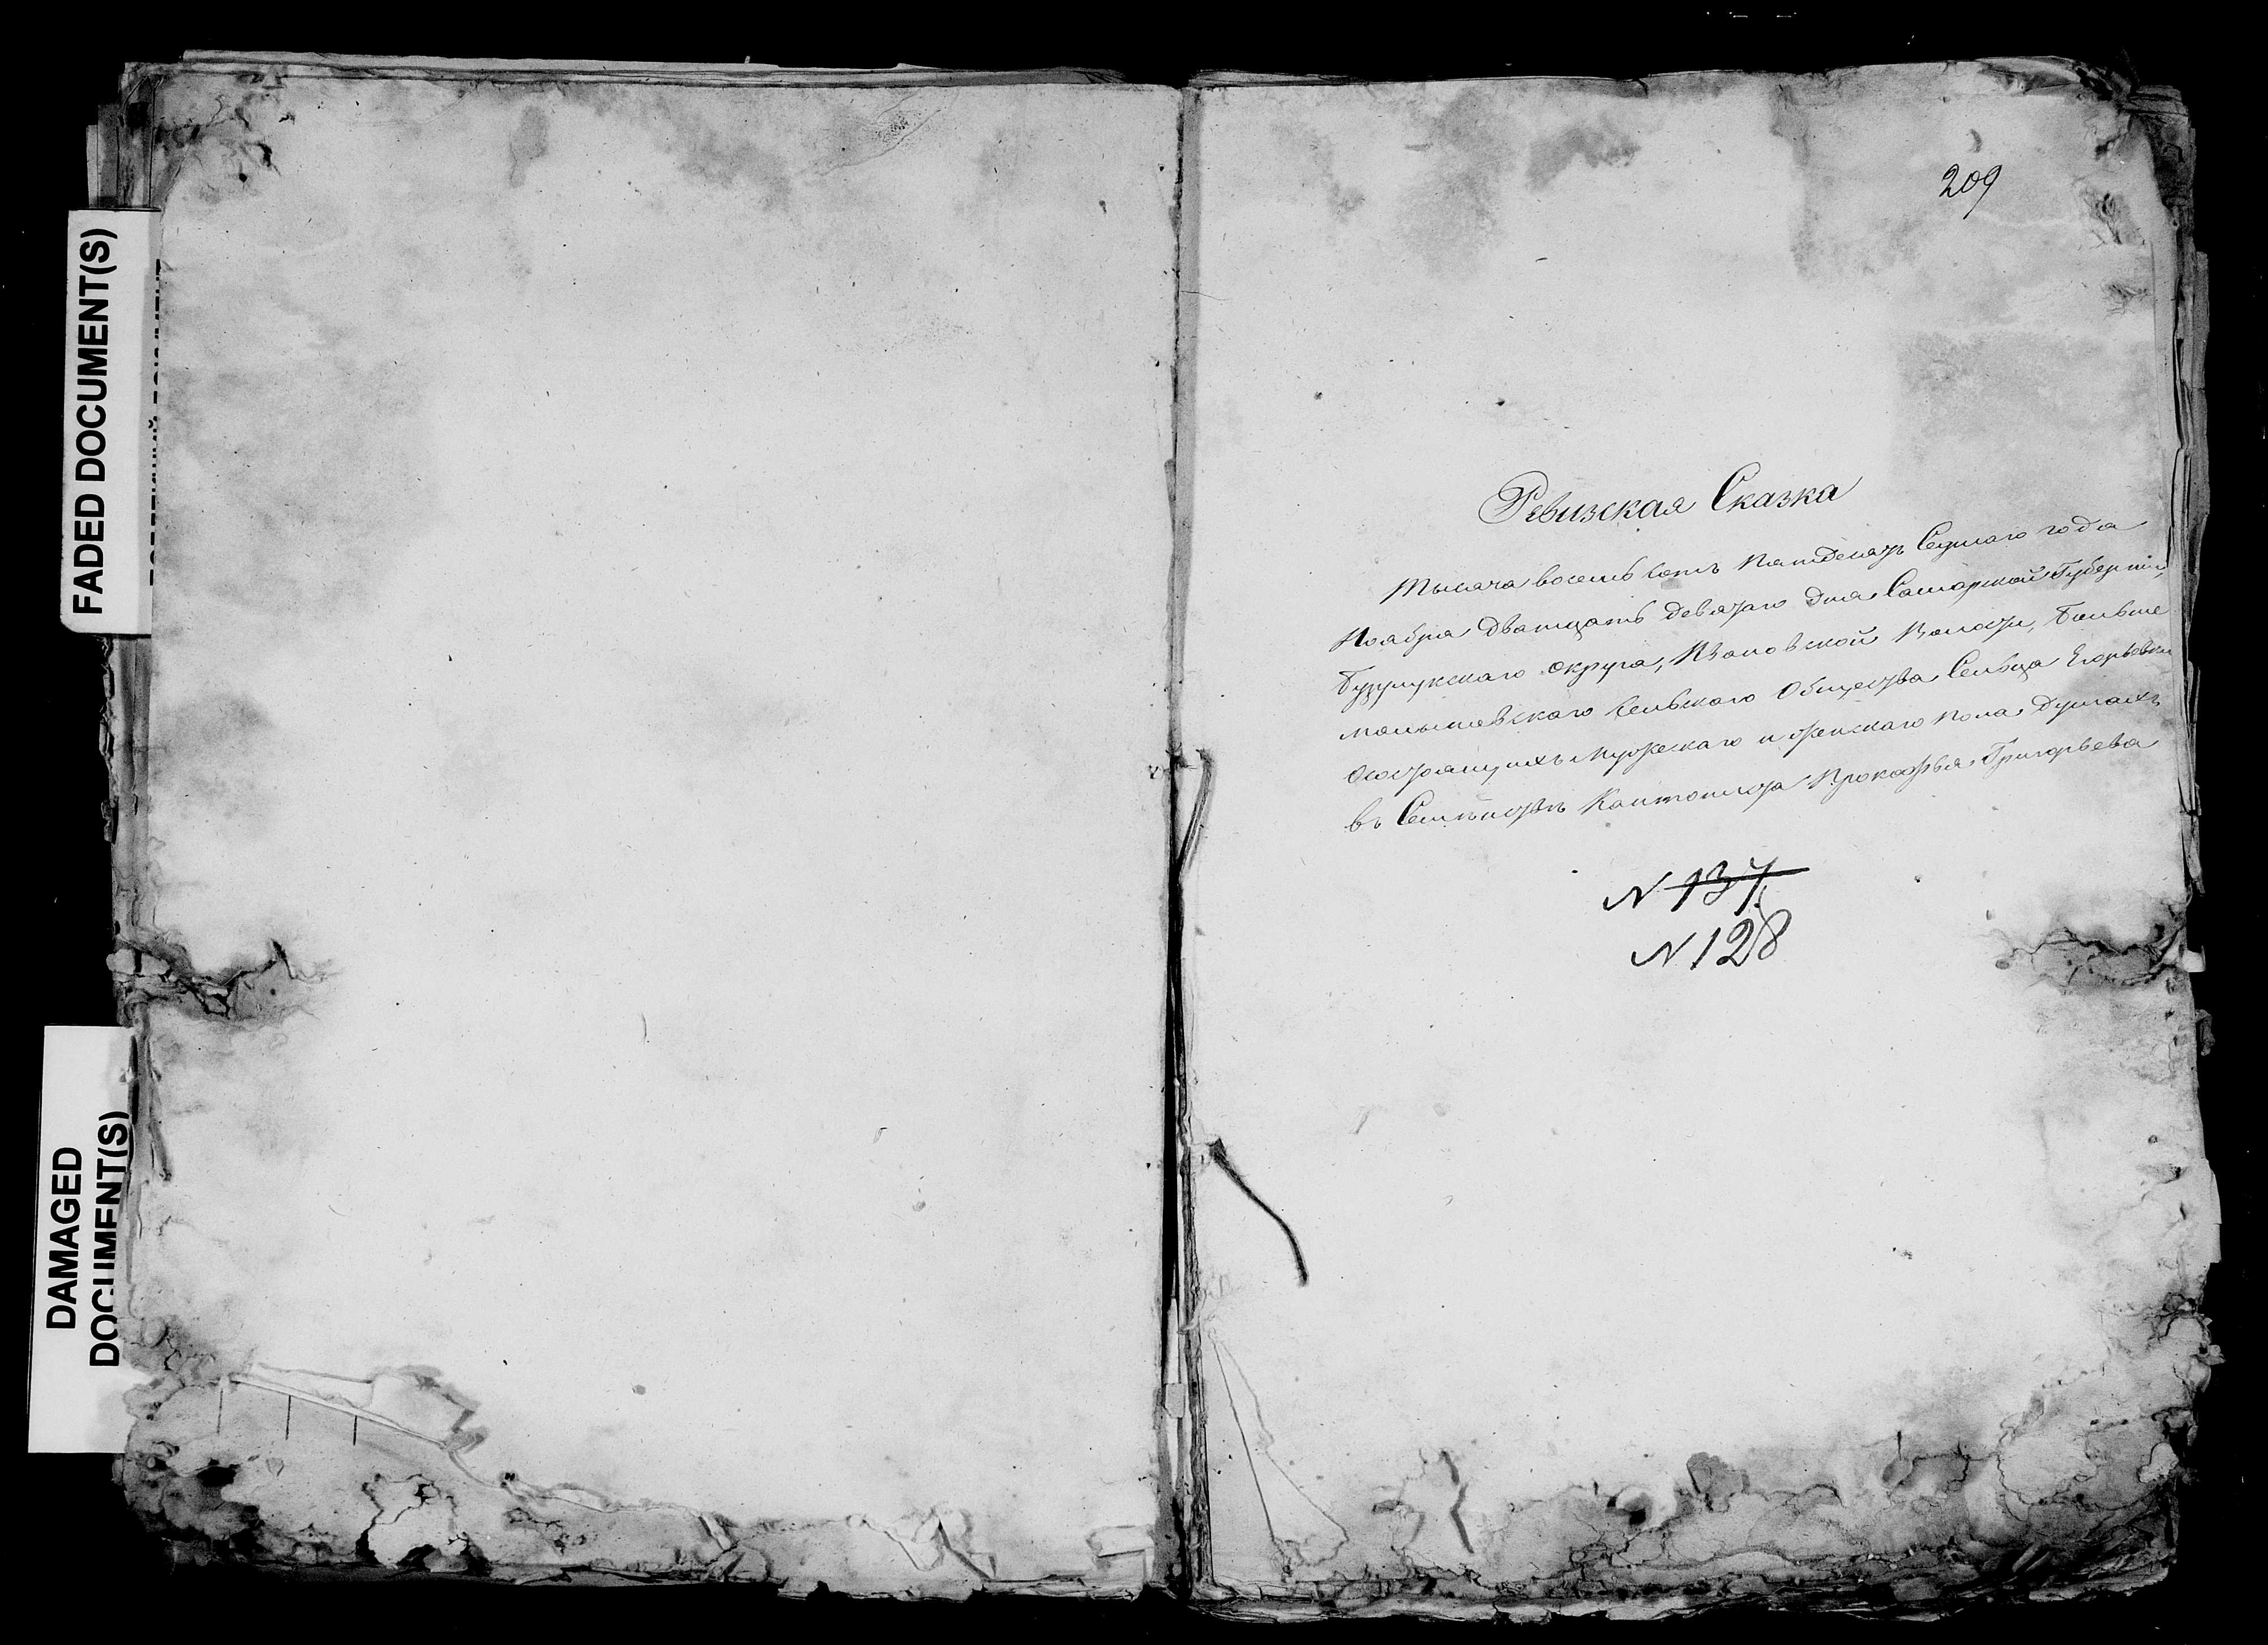 FADED DOCUMENT(S)
DAMAGED
DOCUMENT(S)
209
Ревизская Сказка
Тысяча восемь сотъ Пятдесятъ Седмаго года
Ноября Дватцать девятаго дня Самарской Губерніи,
Бузулукскаго округа, Ивановской Волости, Больше
малышевскаго Сельскаго Общества Сельца Егорьевки
О состоящихъ Мужескаго и женскаго пола душахъ
въ Семѣйствѣ Кантониста Прокофья Григорьева
N 137.
N 128